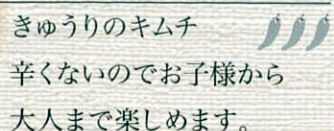 きゅうりのキムチ
辛くないのでお子様から
大人まで楽しめます。